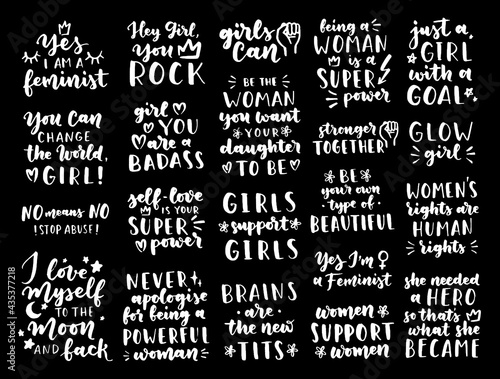 Yes
I AM A
feminist
You Can
CHANGE
the World,
GIRL!
NO means NO
! STOP ABUSE!
I love
Myself
TO THE
Moon
AND back
Hey Girl,
You
ROCK
girl
YOU
are a
BADASS
self-love
IS YOUR
SUPER
power
NEVER
apologise
for being a
POWERFUL
woman
girls
CAN
BE THE
WOMAN
you want
YOUR
daughter
TO BE
GIRLS
support
GIRLS
BRAINS
are
the new
TITS
being a
WOMAN
is a
SUPER
power
stronger
TOGETHER
BE
your own
type of
BEAUTIFUL
Yes I'm
a Feminist
women
SUPPORT
women
just a
GIRL
with a
GOAL.
GLOW
girl
WOMEN'S
rights are
HUMAN
rights
she needed
a HERO
so that's
what she
BECAME
Adobe Stock | #435377218